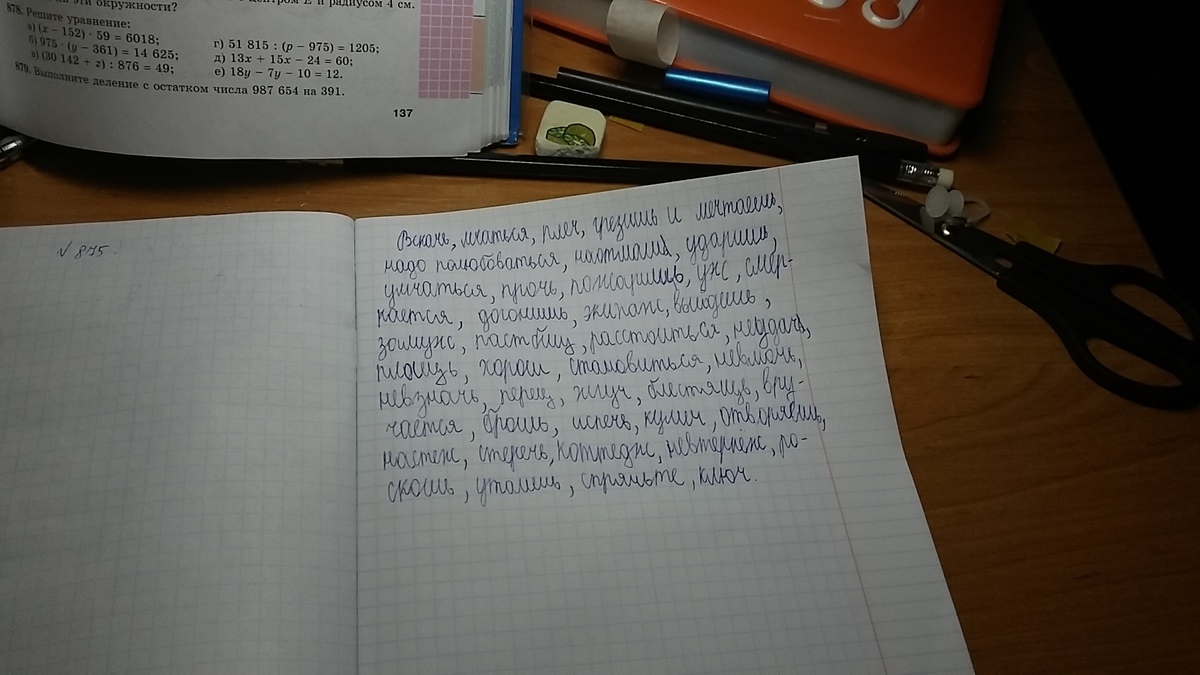 ки эти окружности?
с центром E и радиусом 4 см.
878. Решите уравнение:
а) (x − 152) · 59 = 6018;
б) 975 · (y − 361) = 14 625;
в) (30 142 + z) : 876 = 49;
г) 51 815 : (p − 975) = 1205;
д) 13x + 15x − 24 = 60;
е) 18y − 7y − 10 = 12.
879. Выполните деление с остатком числа 987 654 на 391.
137
№ 875.
Вскачь, мчаться, плеч, грезишь и мечтаешь,
надо полюбоваться, наотмашь, ударишь,
умчаться, прочь, пожарищь, уж, смер-
кается, догонишь, экипаж, выйдешь,
замуж, пастбищ, расстоиться, неудач,
площь, хорош, становиться, невмочь,
невзначь, перец, жгуч, блестящь, вру-
чается, брошь, испечь, кумач, отворяешь,
настеж, стеречь, коттедж, невтерпёж, ро-
скошь, уталишь, спрячьте, ключ.